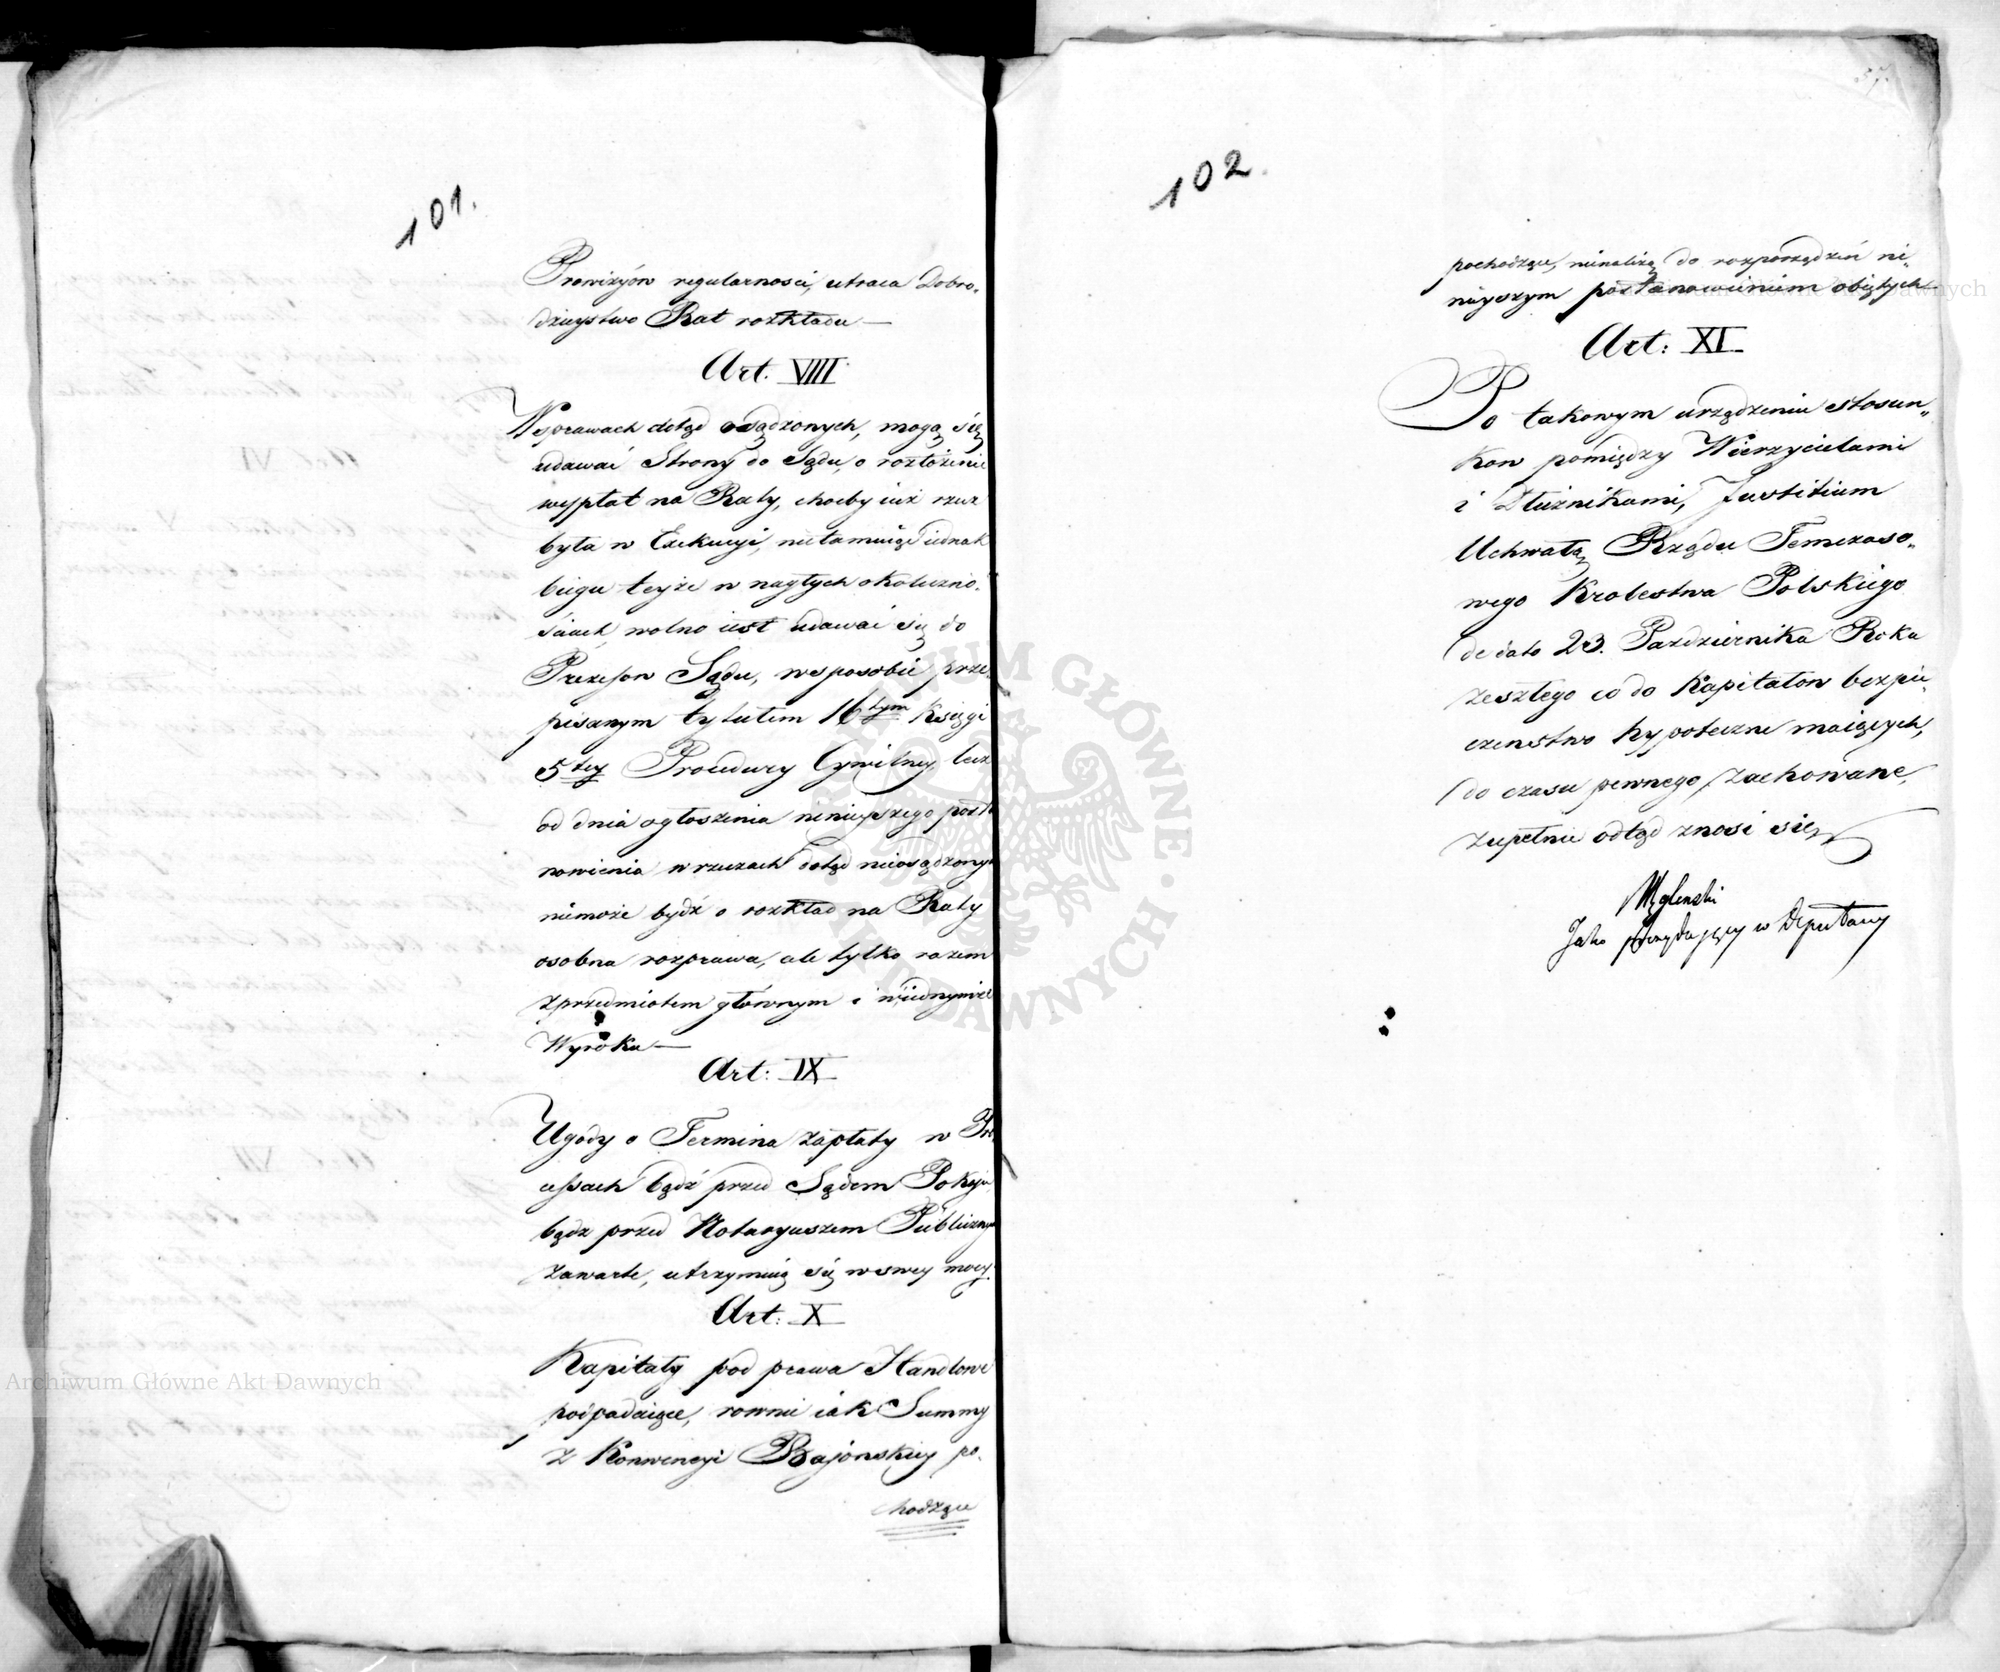 101.
Prowizyów regularności, utraca Dobro-
dzieystwo Rat rozkładu —
Art. VIII
W sprawach dotąd osądzonych, mogą się
udawać Strony do Sądu, o rozłożenie
wypłat na Raty, choćby iuż rzecz
była w Exekucyi, nietamuiąc iednak
biegu teyże w nagłych okoliczno-
ściach, wolno iest udawać się do
Prezesów Sądu, w sposobie prze-
pisanym tytułem 16tym Księgi
5tey Procedury Cywilney, lecz
od dnia ogłoszenia ninieyszego posta
nowienia w rzeczach dotąd nieosądzonych
niemoże bydź o rozkład na Raty
osobna rozprawa, ale tylko razem
z przedmiotem głównym i w iednymże
Wyroku —
Art: IX
Ugody o Termina zapłaty w Pro
cessach bądź przed Sądem Pokoju
bądz przed Notaryuszem Publicznym
zawarte, utrzymuią się w swey mocy.
Art: X
Kapitały pod prawa Handlowe
podpadaiące, rownie iak Summy
z Konwencyi Bajońskiey po-
chodzące
102.
37.
pochodzące, nienależą do rozporządzeń ni-
nieyszym postanowieniem obiętych
Art: XI
Po takowym urządzeniu stosun-
ków pomiędzy Wierzycielami
i Dłużnikami, Justitium
Uchwałą Rządu Temczaso-
wego Krolestwa Polskiego
de dato 23. Pazdziernika Roku
zeszłego co do Kapitałow bezpie-
czenstwo hypoteczne maiących,
do czasu pewnego zachowane,
zupełnie odtąd znosi się
Węgleński
Jako prezydujący w Deputacy
Archiwum Główne Akt Dawnych
ARCHIWUM GŁÓWNE AKT DAWNYCH